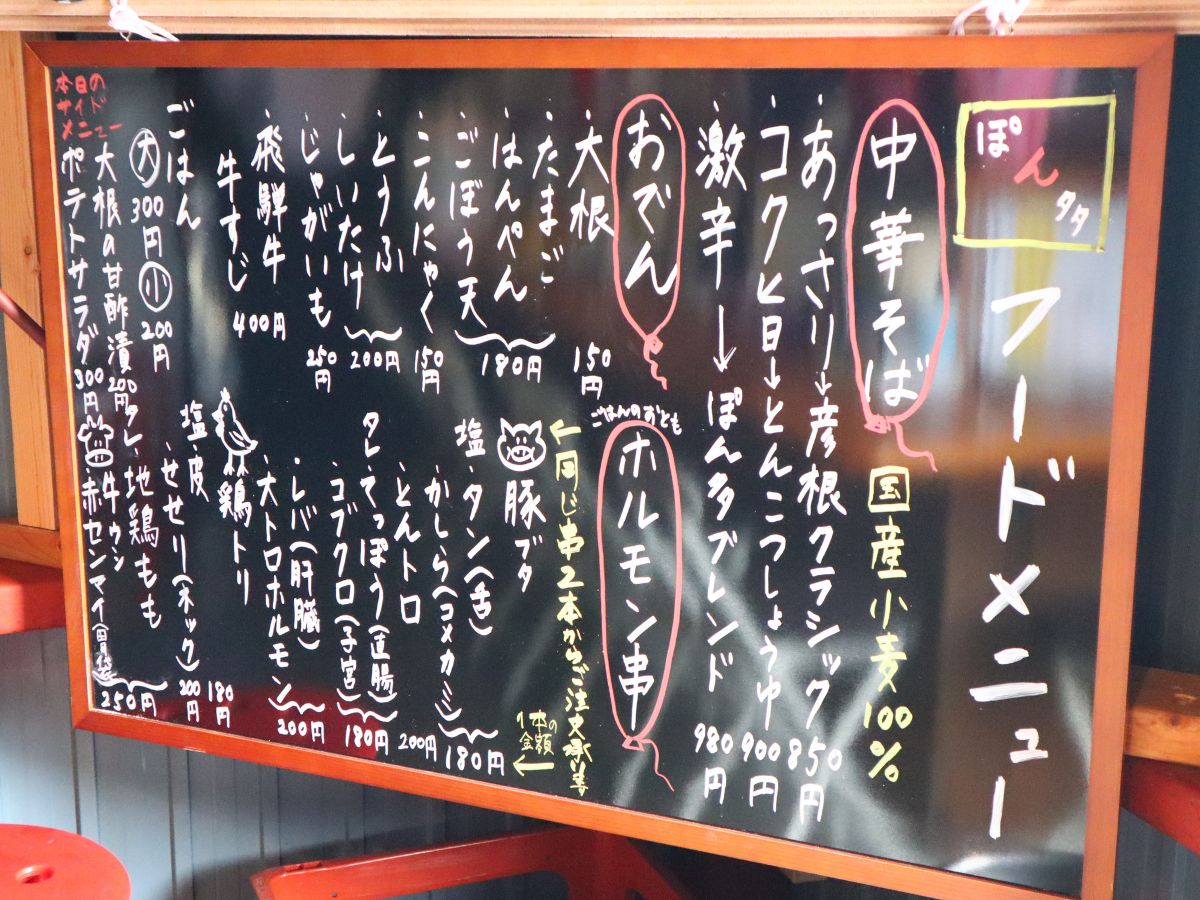 ぽんタタ
フードメニュー
中華そば
国産小麦100%
・あっさり→彦根クラシック 850円
・コクヒ日→とんこつしょうゆ 900円
・激辛→ぽんタブレンド 980円
おでん
・大根 150円
・たまご
・はんぺん
・ごぼう天 180円
・こんにゃく 150円
・とうふ
・しいたけ 200円
・じゃがいも 250円
・飛騨牛
牛すじ 400円
ごはん
大 300円 小 200円
本日の
サイド
メニュー
大根の甘酢漬 200円
ポテトサラダ 300円
ごはんのおとも
ホルモン串
←同じ串2本からご注文承ります
1本の
金額
豚ブタ
塩・タン(舌)
・かしら(コメカミ) 180円
・とんトロ 200円
タレ・てっぽう(直腸)
・コブクロ(子宮) 180円
・レバー(肝臓)
・大トロホルモン 200円
鶏トリ
塩・皮 180円
・せせり(ネック) 200円
タレ・地鶏もも
牛ウシ
赤センマイ(胃袋) 250円